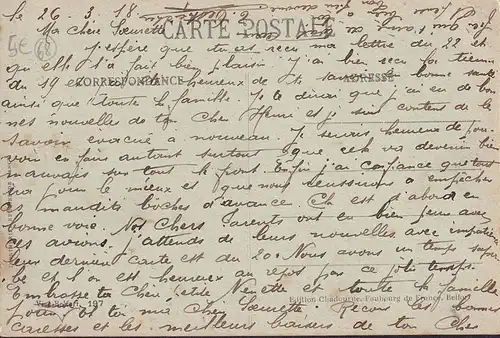 le 26. 3. 18.
CARTE POSTALE
Ma chère Soeurette
J'espère que tu as reçu ma lettre du 22 et
qu'elle t'a fait bien plaisir J'ai bien reçu la tienne
CORRESPONDANCE
ADRESSE
du 19 et heureux de te savoir bonne santé
ainsi que toute la famille. Je te dirai que j'ai eu de bon
nes nouvelles de ton Cher Henri et je suis content de le
savoir évacué à nouveau. Je serais heureux de pou
voir en faire autant surtout que cela devient bien
mauvais sur tout le front. Enfin j'ai confiance que tout
ira pour le mieux et que nous réussirons à empêcher
ces maudits boches d'avancer. Ch est d'abord en
bonne voie. Nos Chers Parents ont eu bien peur avec
ces avions. j'attends de leurs nouvelles avec impatience
leur dernière carte est du 20. Nous avons un temps super
be et l'on est heureux au repos par ce joli temps.
Embrasse ta Chère petite Nénette et toute la famille
pour moi et toi ma chère Soeurette Reçois les bonnes
caresses et les meilleurs baisers de ton Cher
Edition Chadourne, Faubourg de France, Belfort
5€
68